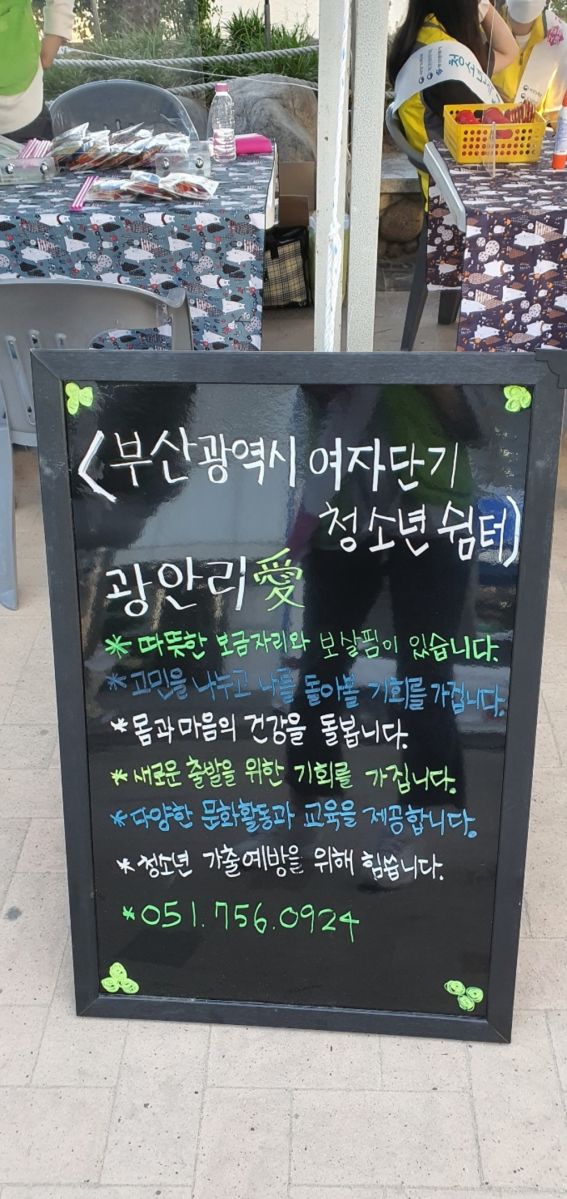 <부산광역시 여자단기
청소년 쉼터)
광안리愛
* 따뜻한 보금자리와 보살핌이 있습니다.
* 고민을 나누고 나를 돌아볼 기회를 가집니다.
* 몸과 마음의 건강을 돌봅니다.
* 새로운 출발을 위한 기회를 가집니다.
* 다양한 문화활동과 교육을 제공합니다.
* 청소년 가출예방을 위해 힘씁니다.
* 051.756.0924